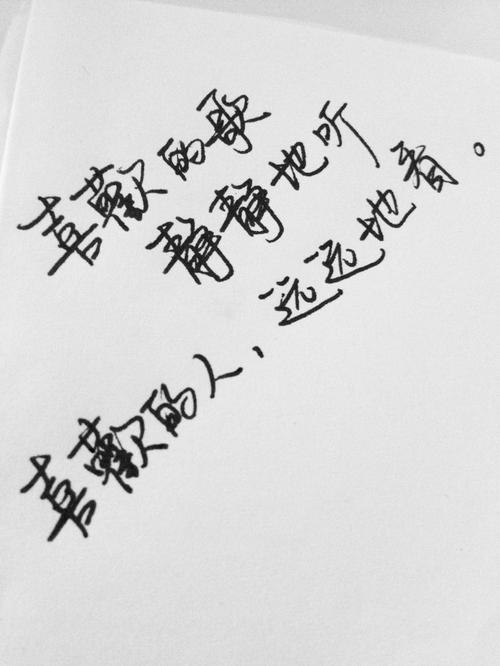 喜歡的歌
静静地听
喜歡的人、
远远地看。